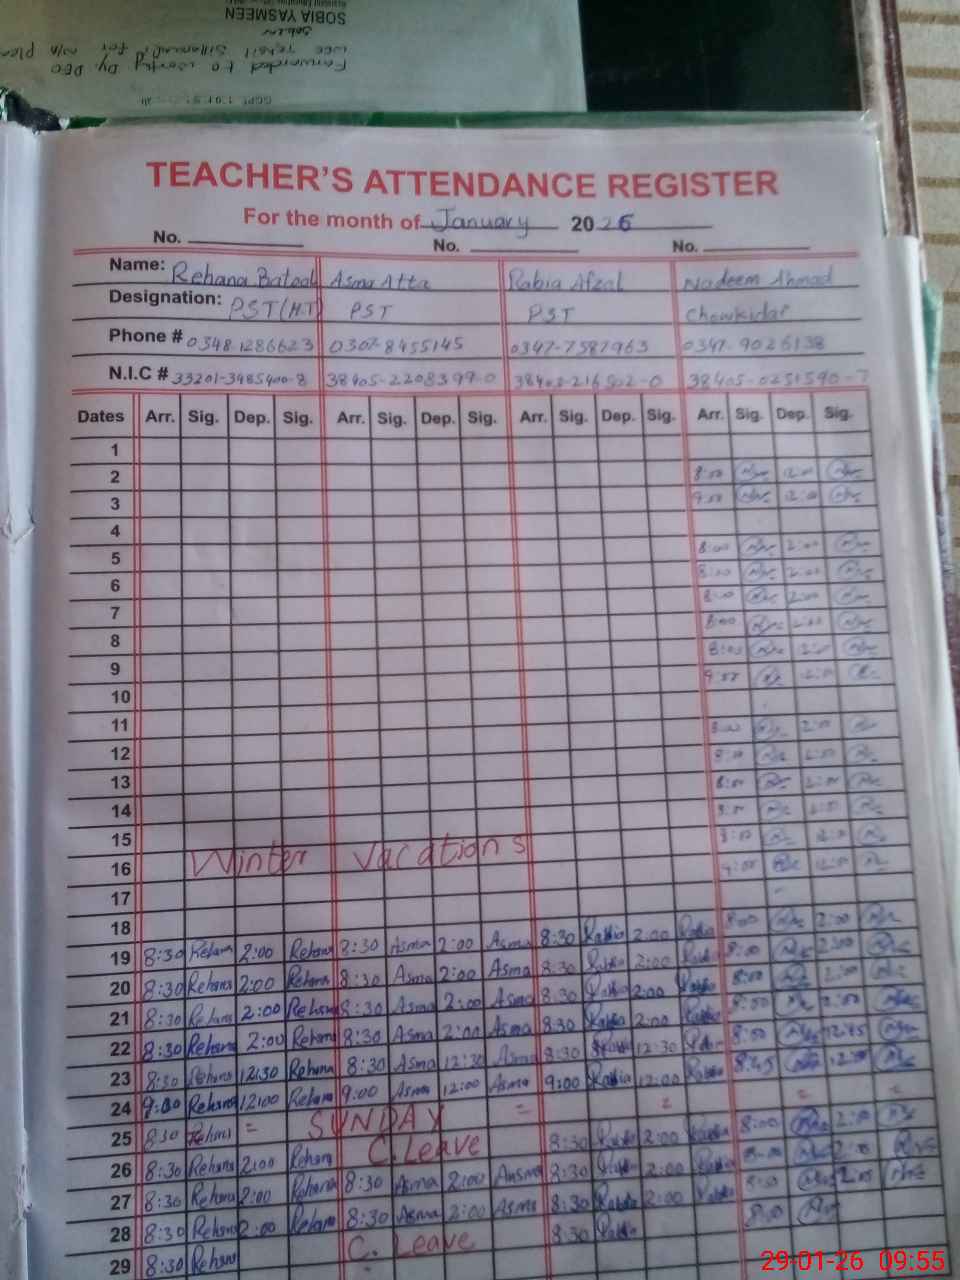 SOBIA YASMEEN
Forwarded to worthy Dy. DEO
TEACHER'S ATTENDANCE REGISTER
For the month of January 2026
No. No. No.
Name: Rehana Batool Asma Atta Rabia Afzal Nadeem Ahmad
Designation: PST(H.T) PST PST Chowkidar
Phone # 0348-1286623 0302-8455145 0347-7587963 0347-9026138
N.I.C # 33201-3485400-8 38405-2208399-0 38405-0251590-7
Dates Arr. Sig. Dep. Sig. Arr. Sig. Dep. Sig. Arr. Sig. Dep. Sig. Arr. Sig. Dep. Sig.
1
2 8:00 12:00
3 9:00 12:00
4
5 8:00 2:00
6 8:00 2:00
7 8:00 2:00
8 8:00 2:00
9 8:00 12:00
10 9:00 12:00
11
12 8:00 2:00
13 8:00 2:00
14 8:00 2:00
15 8:00 2:00
16 Winter Vacations 8:00 12:00
17 9:00 12:00
18
19 8:30 Rehana 2:00 Rehana 8:30 Asma 2:00 Asma 8:30 Rabia 2:00 Rabia 8:00 2:00
20 8:30 Rehana 2:00 Rehana 8:30 Asma 2:00 Asma 8:30 Rabia 2:00 Rabia 8:00 2:00
21 8:30 Rehana 2:00 Rehana 8:30 Asma 2:00 Asma 8:30 Rabia 2:00 Rabia 8:00 2:00
22 8:30 Rehana 2:00 Rehana 8:30 Asma 2:00 Asma 8:30 Rabia 2:00 Rabia 8:00 2:00
23 8:30 Rehana 12:30 Rehana 8:30 Asma 12:30 Asma 8:30 Rabia 12:30 Rabia 8:00 12:45
24 9:00 Rehana 12:00 Rehana 9:00 Asma 12:00 Asma 9:00 Rabia 12:00 Rabia 8:45 12:00
25 8:30 Rehana = SUNDAY = = = =
26 8:30 Rehana 2:00 Rehana C.Leave 8:30 Rabia 2:00 Rabia 8:00 2:00
27 8:30 Rehana 2:00 Rehana 8:30 Asma 2:00 Asma 8:30 Rabia 2:00 Rabia 8:00 2:00
28 8:30 Rehana 2:00 Rehana 8:30 Asma 2:00 Asma 8:30 Rabia 2:00 Rabia 8:00 2:00
29 8:30 Rehana C. Leave 8:30 Rabia 8:00
29-01-26 09:55